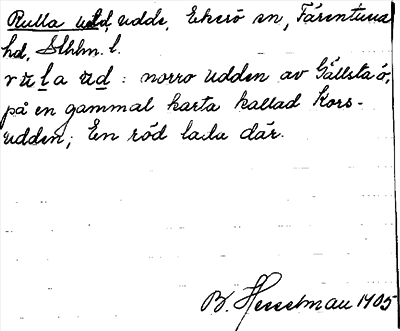 Rulla udd, udde, Ekerö sn, Färentuna
hd, Sthlm. l.
rʉla ud : norra udden av Gällsta ö,
på en gammal karta kallad Kors-
udden; En röd lada där.
B. Hesselman 1905